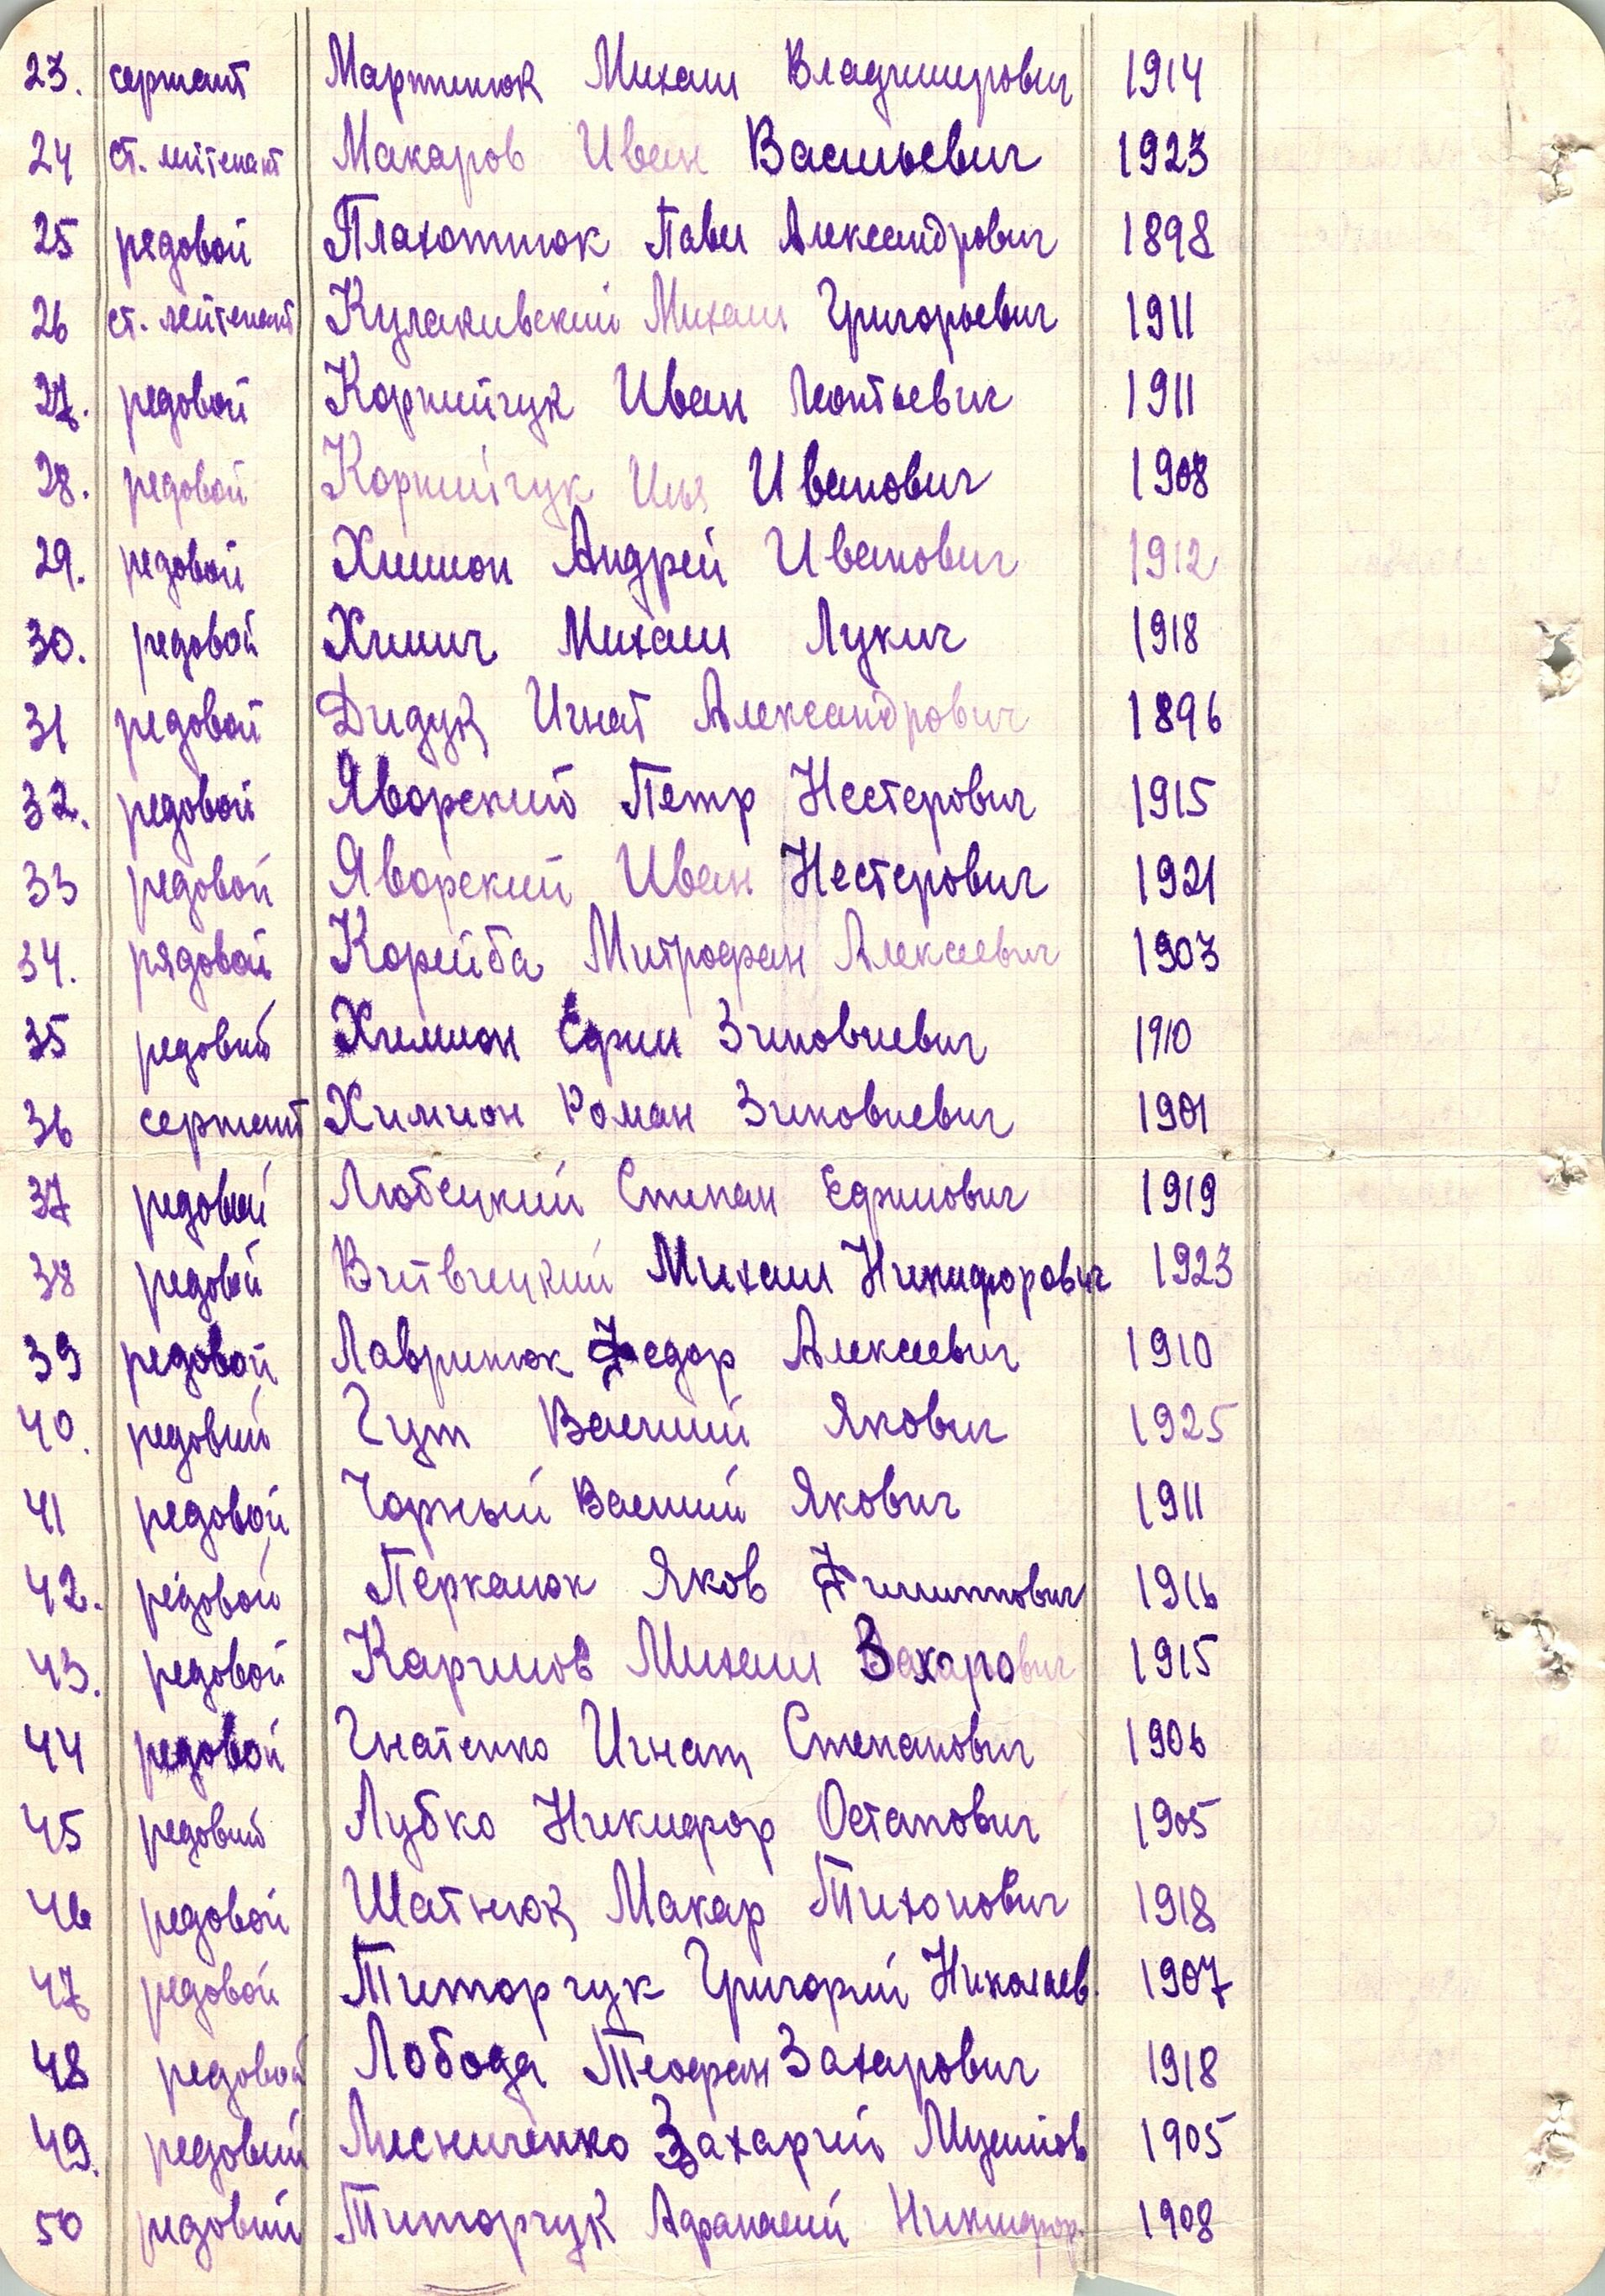 23. сержант Мартинюк Михаил Владимирович 1914
24 ст. лейтенант Макаров Иван Васильевич 1923
25 рядовой Плахотнюк Павел Александрович 1898
26 ст. лейтенант Кулаковский Михаил Григорьевич 1911
27. редовой Корнийчук Иван Леонтьевич 1911
28. редовой Корнийчук Илья Иванович 1908
29. редовой Химион Андрей Иванович 1912
30. редовой Химич Михаил Лукич 1918
31 редовой Дидук Игнат Александрович 1896
32. редовой Яворский Петр Нестерович 1915
33 редовой Яворский Иван Нестерович 1921
34. рядовой Корейба Митрофан Алексеевич 1903
35 редовий Химион Ефим Зиновиевич 1910
36 сержант Химион Роман Зиновиевич 1901
37 редовий Любецкий Степан Ефимович 1919
38 редовой Витвицкий Михаил Никифорович 1923
39 редовой Лавринюк Федор Алексеевич 1910
40. редовий Гут Василий Якович 1925
41 редовой Чорный Василий Якович 1911
42. редовой Перканюк Яков Филиппович 1916
43. редовой Каримов Михаил Захарович 1915
44 редовой Гнатенко Игнат Степанович 1906
45 редовий Лубко Никифор Остапович 1905
46 редовой Шатнюк Макар Тихонович 1918
47 редовой Титорчук Григорий Николаев. 1907
48 редовой Лобода Теофан Захарович 1918
49. редовий Лесниченко Захарий 1905
50 редовий Титорчук Афанасий Никифор. 1908